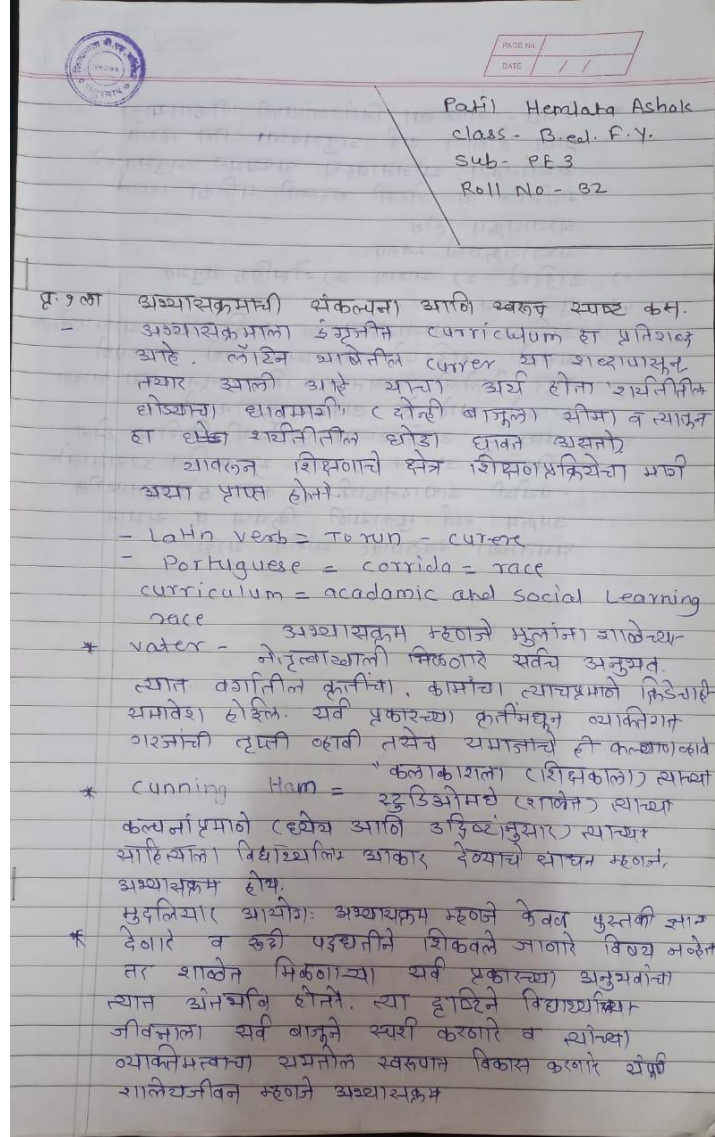 PAGE No.
DATE / /
Patil Hemlata Ashok
class - B.ed. F.Y.
Sub - PE3
Roll No - 32
प्र.१ला अभ्यासक्रमाची संकल्पना आणि स्वरूप स्पष्ट करा.
- अभ्यासक्रमाला इंग्रजीत curriculum हा प्रतिशब्द
आहे. लॅटिन भाषेतील currer या शब्दापासून
तयार झाली आहे याचा अर्थ होतो 'शर्यतीतील
घोड्याचा धावमार्ग' (दोन्ही बाजूला सीमा) व त्यातून
हा शर्यतीतील घोडा धावत असतो,
यावरून शिक्षणाचे क्षेत्र शिक्षणप्रक्रियेचा मार्ग
असा प्राप्त होतो.
- Latin verb = To run - curere
- Portuguese = corrida = race
curriculum = acadamic and social Learning
race
अभ्यासक्रम म्हणजे मुलांना शाळेच्या
* vater - नेतृत्वाखाली मिळणारे सर्वच अनुभव.
त्यात वर्गातील कृतींचा, कामांचा त्याचप्रमाणे क्रिडेचाही
समावेश होईल. सर्व प्रकारच्या कृतींमधून व्यक्तिगत
गरजांची तृप्ती व्हावी तसेच समाजाचे ही कल्याण व्हावे
"कलाकाराला (शिक्षकाला) त्याच्या
* Cunning Ham = स्टुडिओमधे (शाळेत) त्याच्या
कल्पनांप्रमाणे (ध्येय आणि उद्दिष्टांनुसार) त्याच्या
साहित्याला विद्यार्थ्याला आकार देण्याचे साधन म्हणजे,
अभ्यासक्रम होय.
मुदलियार आयोग: अभ्यासक्रम म्हणजे केवळ पुस्तकी ज्ञान
* देणारे व रूढी पद्धतीने शिकवले जाणारे विषय नव्हेत
तर शाळेत मिळणाऱ्या सर्व प्रकारच्या अनुभवांचा
त्यात अंतर्भाव होतो. त्या दृष्टिने विद्यार्थ्यांच्या
जीवनाला सर्व बाजूने स्पर्श करणारे व त्यांच्या
व्यक्तिमत्वाचा समतोल स्वरूपात विकास करणारे संपूर्ण
शालेयजीवन म्हणजे अभ्यासक्रम